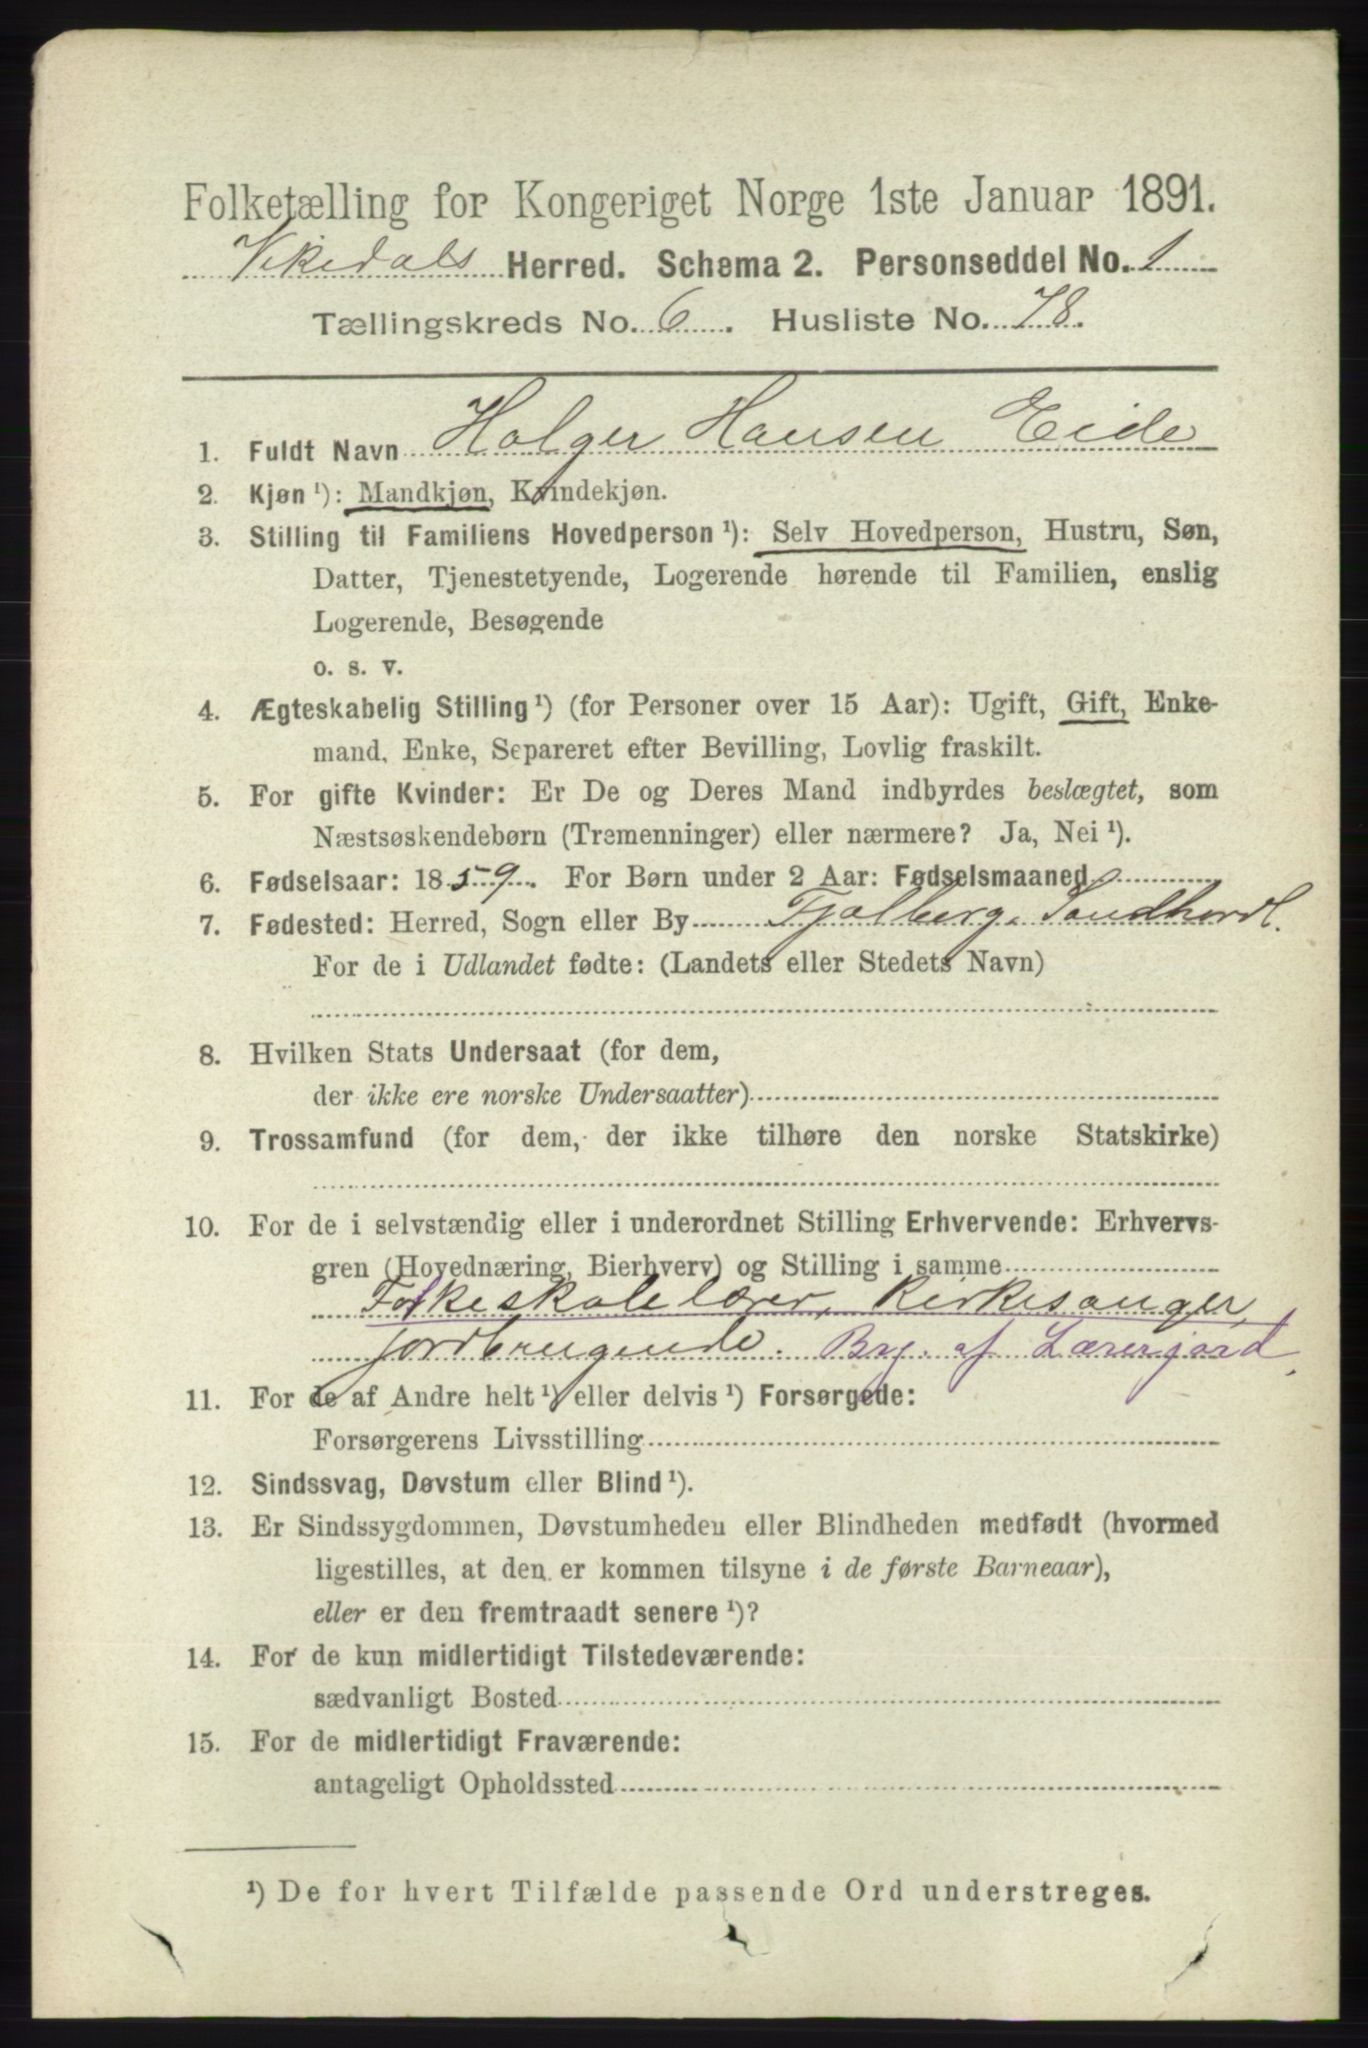 Folketælling for Kongeriget Norge 1ste Januar 1891.
Vikedals Herred. Schema 2. Personseddel No. 1
Tællingskreds No. 6. Husliste No. 78.
1. Fuldt Navn Holger Hansen Eide
2. Kjøn¹): Mandkjøn, Kvindekjøn.
3. Stilling til Familiens Hovedperson¹): Selv Hovedperson, Hustru, Søn,
Datter, Tjenestetyende, Logerende hørende til Familien, enslig
Logerende, Besøgende
o. s. v.
4. Ægteskabelig Stilling¹) (for Personer over 15 Aar): Ugift, Gift, Enke-
mand, Enke, Separeret efter Bevilling, Lovlig fraskilt.
5. For gifte Kvinder: Er De og Deres Mand indbyrdes beslægtet, som
Næstsøskendebørn (Tremenninger) eller nærmere? Ja, Nei¹).
6. Fødselsaar: 1859. For Børn under 2 Aar: Fødselsmaaned
7. Fødested: Herred, Sogn eller By Fjelberg, Søndhordl.
For de i Udlandet fødte: (Landets eller Stedets Navn)
8. Hvilken Stats Undersaat (for dem,
der ikke ere norske Undersaatter)
9. Trossamfund (for dem, der ikke tilhøre den norske Statskirke)
10. For de i selvstændig eller i underordnet Stilling Erhvervende: Erhvervs-
gren (Hovednæring, Bierhverv) og Stilling i samme
Folkeskolelærer, Kirkesanger,
jordbrugende. Brg. af Lærerjord.
11. For de af Andre helt¹) eller delvis¹) Forsørgede:
Forsørgerens Livsstilling
12. Sindssvag, Døvstum eller Blind¹).
13. Er Sindssygdommen, Døvstumheden eller Blindheden medfødt (hvormed
ligestilles, at den er kommen tilsyne i de første Barneaar),
eller er den fremtraadt senere¹)?
14. For de kun midlertidigt Tilstedeværende:
sædvanligt Bosted
15. For de midlertidigt Fraværende:
antageligt Opholdssted
¹) De for hvert Tilfælde passende Ord understreges.